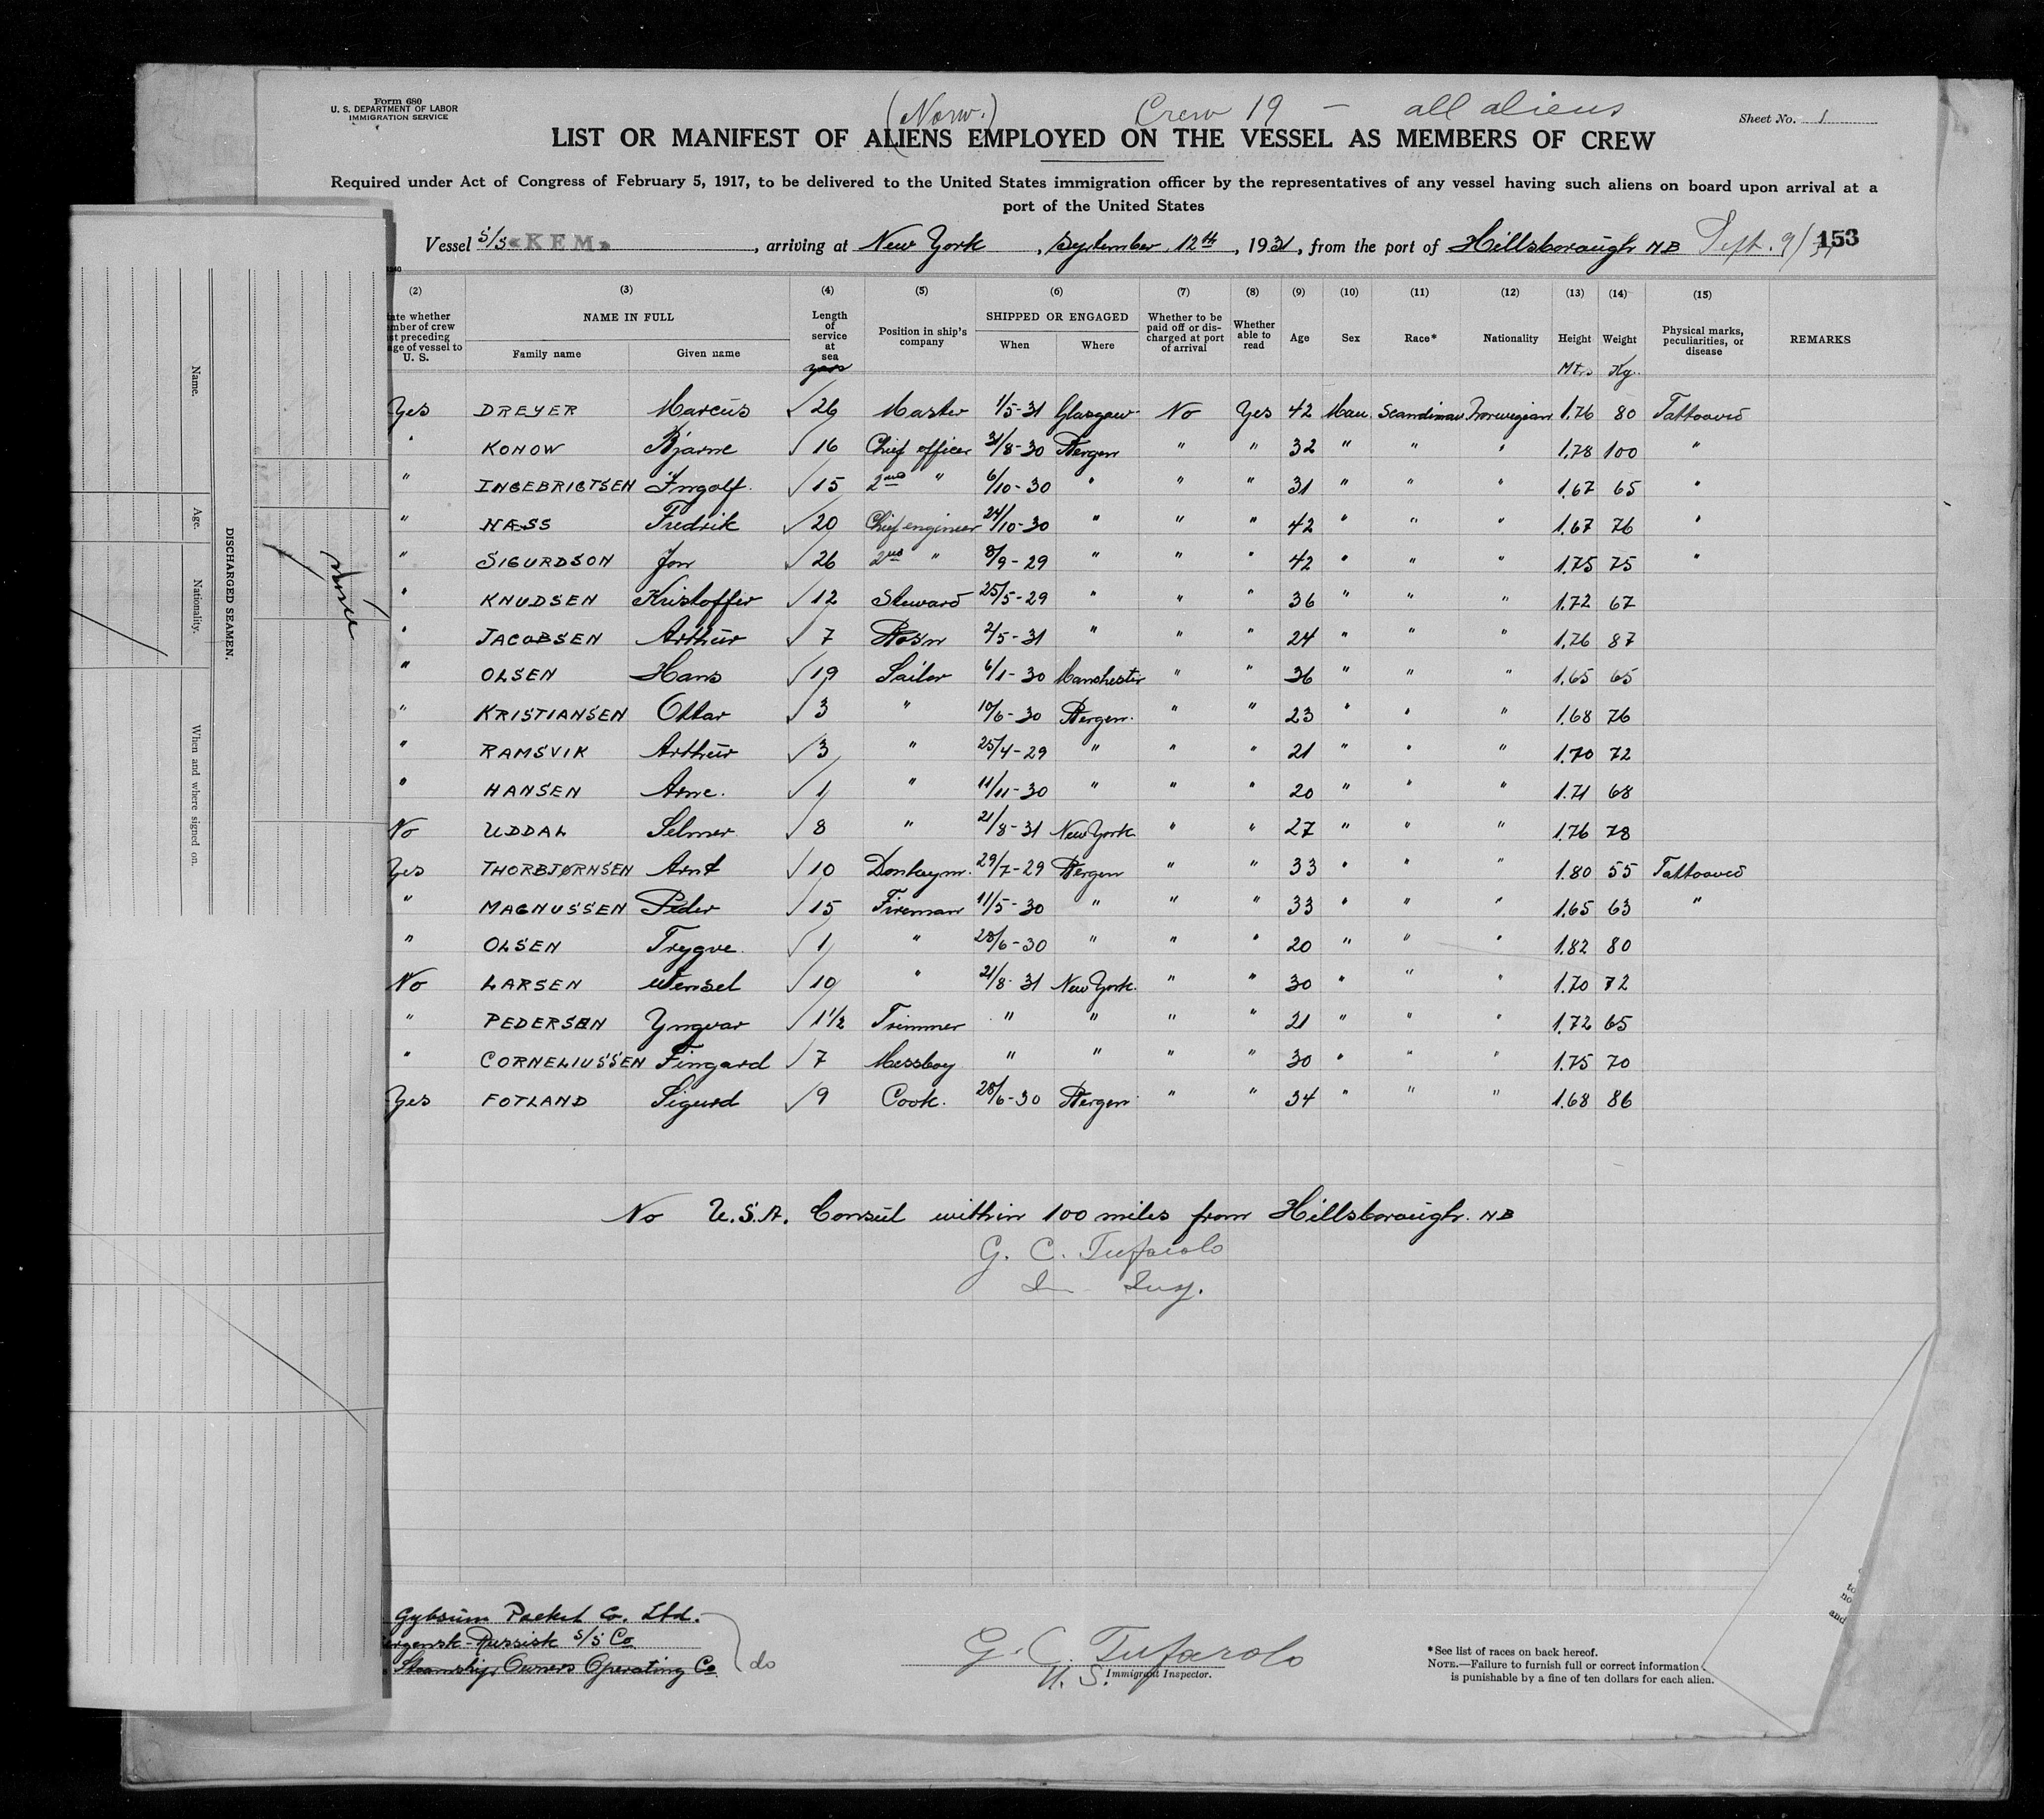 Form 680
U. S. DEPARTMENT OF LABOR
IMMIGRATION SERVICE
(Norw.)
Crew 19 — all aliens
Sheet No. 1
LIST OR MANIFEST OF ALIENS EMPLOYED ON THE VESSEL AS MEMBERS OF CREW
Required under Act of Congress of February 5, 1917, to be delivered to the United States immigration officer by the representatives of any vessel having such aliens on board upon arrival at a
port of the United States
Vessel S/S «KEM», arriving at New York, September 12th, 1931, from the port of Hillsborough NB Sept. 9/31 153
(2) (3) (4) (5) (6) (7) (8) (9) (10) (11) (12) (13) (14) (15)
ate whether mber of crew st preceding age of vessel to U. S.
NAME IN FULL
Family name Given name
Length of service at sea years
Position in ship's company
SHIPPED OR ENGAGED
When Where
Whether to be paid off or discharged at port of arrival
Whether able to read
Age Sex Race* Nationality Height Mtrs Weight Kg.
Physical marks, peculiarities, or disease
REMARKS
Yes DREYER Marcus √ 26 Master 1/5-31 Glasgow No Yes 42 Man Scandinav Norwegian 1.76 80 Tattooved
" KONOW Bjarne √ 16 Chief officer 31/8-30 Bergen " " 32 " " " 1.78 100 "
" INGEBRIGTSEN Ingolf √ 15 2nd " 6/10-30 " " " 31 " " " 1.67 65 "
" NÆSS Fredrik √ 20 Chief engineer 24/10-30 " " " 42 " " " 1.67 76 "
" SIGURDSON Jon √ 26 2nd " 8/9-29 " " " 42 " " " 1.75 75 "
" KNUDSEN Kristoffer √ 12 Steward 25/5-29 " " " 36 " " " 1.72 67
" JACOBSEN Arthur √ 7 Bos'n 2/5-31 " " " 24 " " " 1.76 87
" OLSEN Hans √ 19 Sailor 6/1-30 Manchester " " 36 " " " 1.65 65
" KRISTIANSEN Ottar √ 3 " 10/6-30 Bergen " " 23 " " " 1.68 76
" RAMSVIK Arthur √ 3 " 25/4-29 " " " 21 " " " 1.70 72
" HANSEN Arne √ 1 " 11/11-30 " " " 20 " " " 1.71 68
No UDDAL Selmer √ 8 " 21/8-31 New York " " 27 " " " 1.76 78
Yes THORBJØRNSEN Arnt √ 10 Donkeym. 29/7-29 Bergen " " 33 " " " 1.80 55 Tattooved
" MAGNUSSEN Peder √ 15 Fireman 11/5-30 " " " 33 " " " 1.65 63 "
" OLSEN Trygve √ 1 " 28/6-30 " " " 20 " " " 1.82 80
No LARSEN Wensel √ 10 " 21/8-31 New York " " 30 " " " 1.70 72
" PEDERSEN Yngvar √ 1 1/2 Trimmer " " " " 21 " " " 1.72 65
" CORNELIUSSEN Fingard √ 7 Messboy " " " " 30 " " " 1.75 70
Yes FOTLAND Sigurd √ 9 Cook 28/6-30 Bergen " " 34 " " " 1.68 86
No U.S.A. Consul within 100 miles from Hillsborough NB
G. C. Tufarolo
Gybsum Packet Co. Ltd.
ergensk-Russisk S/S Co
Steamship Owners Operating Co
do
G. C. Tufarolo
U. S. Immigrant Inspector.
*See list of races on back hereof.
NOTE.—Failure to furnish full or correct information
is punishable by a fine of ten dollars for each alien.
Name.
Age.
Nationality.
When and where signed on.
DISCHARGED SEAMEN.